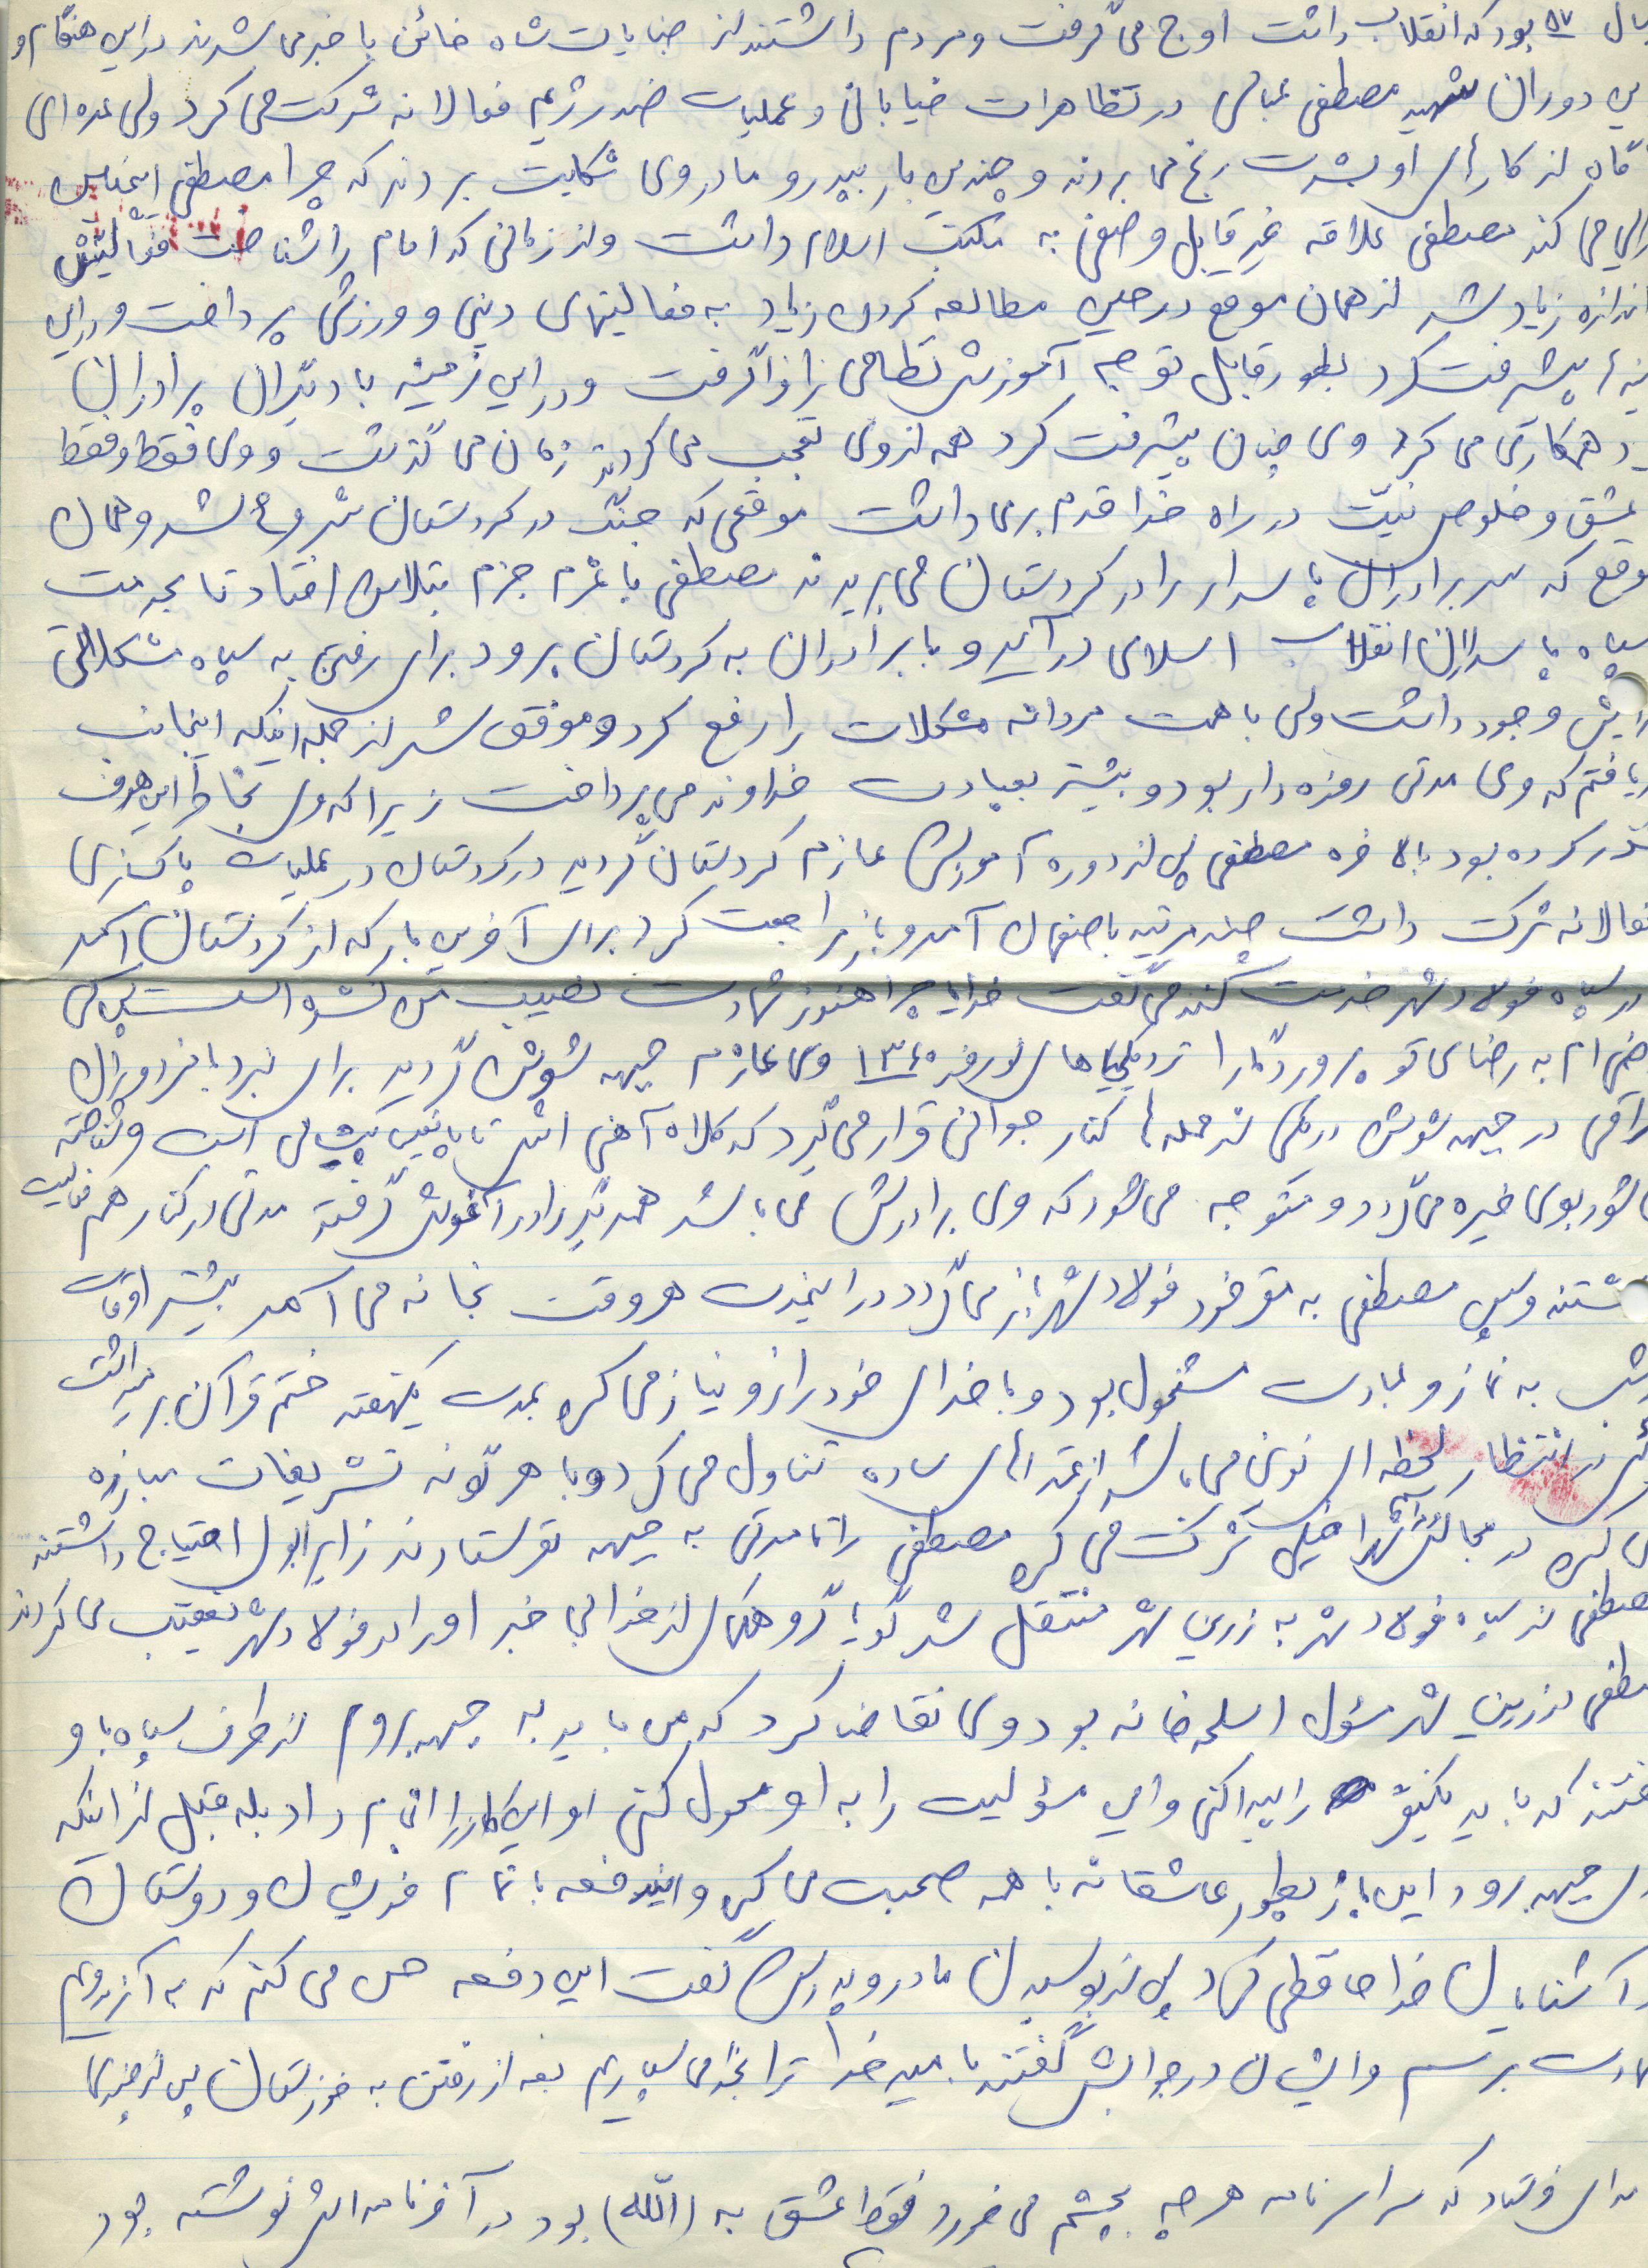 سال ۵۷ بود که انقلاب داشت اوج می گرفت و مردم داشتند از جنایات شاه خائن با خبر می شدند در این هنگام و
این دوران شهید مصطفی عباسی در تظاهرات خیابانی و عملیات ضد رژیم فعالانه شرکت می کرد ولی عده ای
از کارهای او بشدت رنج می بردند و چندین بار بپدر و مادر وی شکایت بردند که چرا مصطفی اینچنین
می کند مصطفی علاقه غیر قابل وصفی به مکتب اسلام داشت و از زمانی که امام را شناخت فعالیتش
اندازه زیاد شد از همان موقع در حین مطالعه کردن زیاد به فعالیتهای دینی و ورزشی پرداخت و در این
پیشرفت کرد بطور قابل توجه آموزش نظامی را فرا گرفت و در این زمینه با دیگران برادران
همکاری می کرد وی چنان پیشرفت کرد همه از وی تعجب می کردند زمان می گذشت و وی فقط و فقط
عشق و خلوص نیت در راه خدا قدم برمی داشت موقعی که جنگ در کردستان شروع شد و همان
موقع که سر برادران پاسدار را در کردستان می بریدند مصطفی با عزم جزم بتلاش افتاد تا بخدمت
سپاه پاسداران انقلاب اسلامی در آید و با برادران به کردستان برود برای رفتن به سپاه مشکلاتی
برایش وجود داشت ولی با همت مردانه مشکلات را رفع کرد و موفق شد از جمله اینکه اینجانب
دریافتم که وی مدتی روزه دار بود و بیشتر بعبادت خداوند می پرداخت زیرا که وی بخاطر این هدف
نذر کرده بود بالاخره مصطفی پس از دوره آموزش عازم کردستان گردید در کردستان در عملیات پاکسازی
فعالانه شرکت داشت چند مرتبه باصفهان آمد و باز مراجعت کرد برای آخرین بار که از کردستان آمد
در سپاه فولادشهر خدمت کند می گفت خدایا چرا هنوز شهادت نصیب من نشده است
راضی ام به رضای تو پروردگارا نزدیکیهای نوروز ۱۳۶۰ وی عازم جبهه شوش گردید برای نبرد با مزدوران
عراقی در جبهه شوش در یکی از حمله ها کنار جوانی قرار می گیرد که کلاه آهنی اش تا پائین پیشانی است و شناخته
نمی شود بوی خیره می گردد و متوجه می شود که وی برادرش می باشد همدیگر را در آغوش گرفته مدتی در کنار هم فعالیت
داشتند و سپس مصطفی به مقر خود فولادشهر باز می گردد در اینمدت هر وقت بخانه می آمد بیشتر اوقات
شب به نماز و عبادت مشغول بود و با خدای خود راز و نیاز می کرد بمدت یکهفته ختم قرآن برمیداشت
در انتظار لحظه ای نوین می باشد از غذاهای ساده تناول می کرد و با هر گونه تشریفات مبارزه
می کرد در مجالس شهدا خیلی شرکت می کرد مصطفی را تا مدتی به جبهه نفرستادند زیرا بوی احتیاج داشتند
مصطفی از سپاه فولادشهر به زرین شهر منتقل شد گویا گروهکهای از خدا بی خبر او را در فولادشهر تعقیب می کردند
مصطفی در زرین شهر مسئول اسلحه خانه بود وی تقاضا کرد که من باید به جبهه بروم از طرف سپاه با و
گفتند که باید یکنفر را پیدا کنی و این مسؤلیت را به او محول کنی او این کار را انجام داد بله قبل از اینکه
به جبهه برود این بار بطور عاشقانه با همه صحبت می کرد و ایندفعه با تمام خویشان و دوستان
و آشنایان خدا حافظی کرد پس از بوسیدن مادر و پدرش گفت این دفعه حس می کنم که به آرزویم
شهادت برسم و ایشان در جوابش گفتند با امید خدا ترا بخدا می سپاریم بعد از رفتن به خوزستان پس از چندی
نامه ای فرستاد که سراسر نامه هر چه بچشم می خورد فقط عشق به (الله) بود در آخر نامه اش نوشته بود